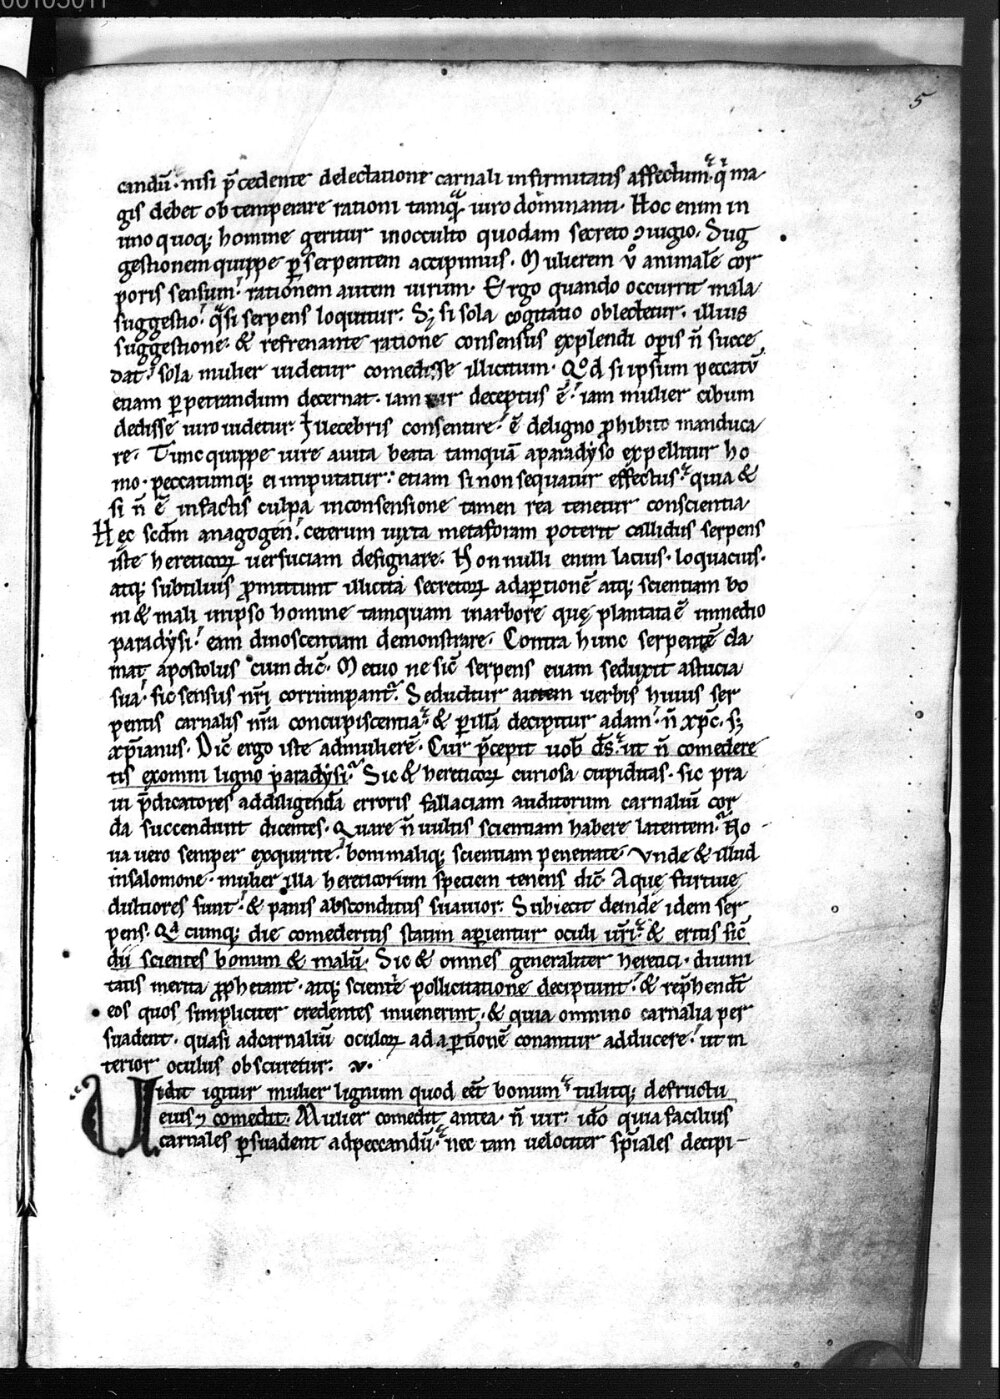 5
candū· nisi p̄cedente delectatione carnali infirmitatis affectum· q̇ ma
gis debet obtemperare rationi tamq̃ uiro dominanti· Hoc enim in
uno quoq; homine geritur inocculto quodam secreto ꝯiugio. Sug
gestionem quippe ꝑ serpentem accipimus. Mulierem v̊ animalē cor
poris sensum· rationem autem uirum. Ergo quando occurrit mala
suggestio· q̃si serpens loquitur. S; si sola cogitatio oblectetur· illius
suggestione· & refrenante ratione consensus explendi opis n̄ succe
dat· sola mulier uidetur comedisse illicitum. Qd̊ si ipsum peccatū
etiam ꝑpetrandum decernat· iam uir deceptus ē· iam mulier cibum
dedisse uiro uidetur· Illecebris consentire· ē deligno ꝓhibito manduca
re. Tunc quippe iure auita beata tamquā aparadyso expellitur ho
mo· peccatumq; ei imputatur· etiam si non sequatur effectus· quia &
si n̄ ē infactis culpa inconsensione tamen rea tenetur conscientia
Hęc scdm̄ anagogen· ceterum iuxta metaforam poterit callidus serpens
iste hereticoꝝ uersuciam designare. Nonnulli enim lacius· loquacius·
atq; subtilius ꝓmittunt illicitā secretoꝝ adaꝑtionē atq; scientiam bo
ni & mali inipso homine tamquam inarbore quę plantata ē inmedio
paradysi· eam dinoscentiam demonstrare. Contra hunc serpentē cla
mat apostolus cum dic̄. Metuo ne sic̄ serpens euam seduxit astucia
sua· sic sensus nr̄i corrumpant᷑. Seducitur autem uerbis huius ser
pentis carnalis nr̄a concupiscentia· & ꝑ illā decipitur adam· n̄ xp̄c· s;
xp̄ianus. Dic̄ ergo iste admulierē. Cur p̄cepit uob̄ ds̄· ut n̄ comedere
tis exomni ligno paradysi· Sic & hereticoꝝ curiosa cupiditas· sic pra
ui p̄dicatores addiligendā erroris fallaciam auditorum carnaliū cor
da succendunt dicentes. Quare n̄ uultis scientiam habere latentem· No
ua uero semper exquirite· boni maliq; scientiam penetrate. Unde & illud
insalomone· mulier illa hereticorum speciem tenens dic̄. Aquę furtiuę
dultiores sunt· & panis absconditus suauior. Subiecit deinde idem ser
pens. Qa cumq; die comederitis statim aꝑientur oculi ur̄i· & eritis sic̄
dii scientes bonum & malū. Sic & omnes generaliter heretici· diuini
tatis merita ꝓphetant· atq; scientię pollicitatione decipiunt· & rep̄hendt̄
eos quos simpliciter credentes inuenerint· & quia omnino carnalia per
suadent· quasi adcarnaliū oculoꝝ adaꝑtionē conantur adducere· ut in
terior oculus obscuretur. v.
Uidit igitur mulier lignum quod eēt bonum· tulitq; defructu
eius ⁊ comedit. Mulier comedit antea· n̄ uir· idō quia facilius
carnales ꝑsuadent adpeccandū· nec tam uelociter sp̄iales decipi–